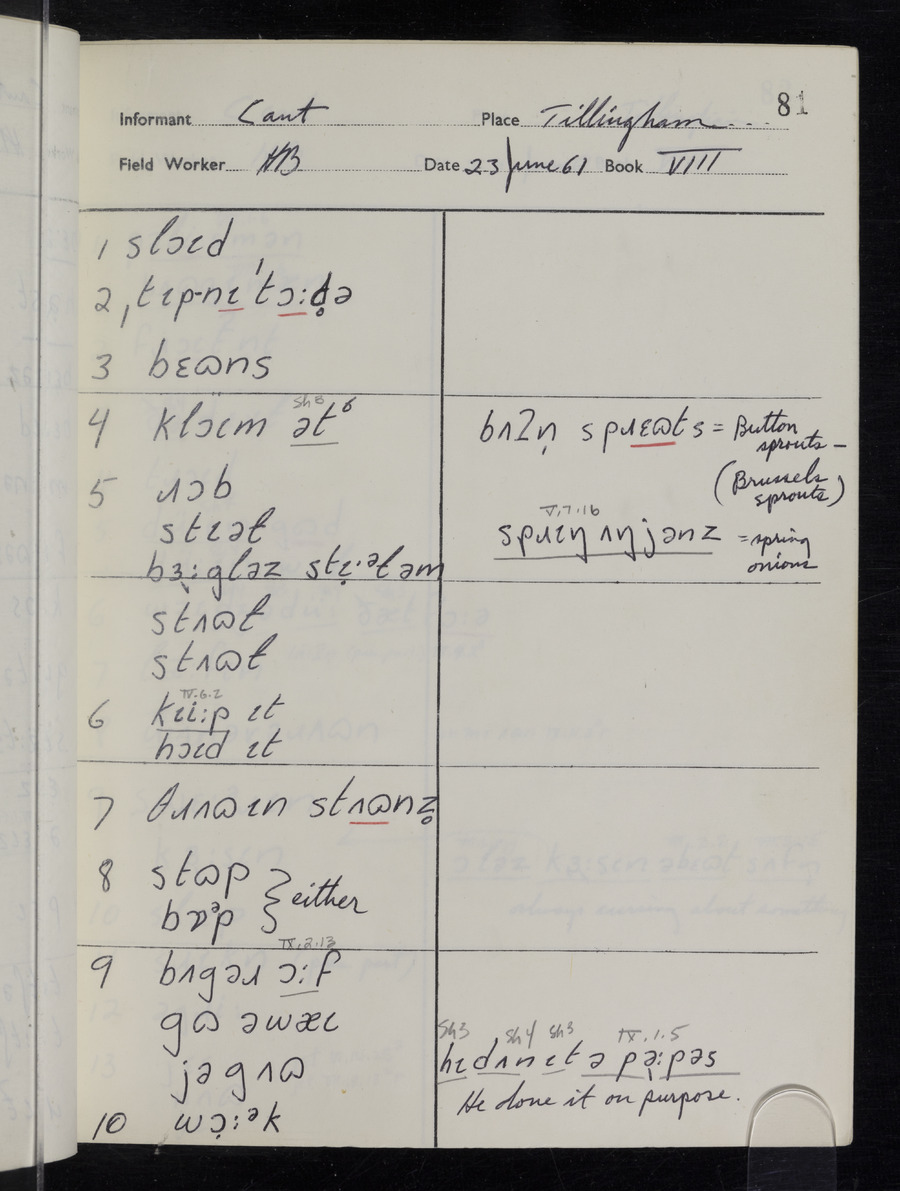 81
Informant Cant Place Tillingham
Field Worker HB Date 23 June 61 Book VIII
1 slɔɪd
2 ˌtɪp-nɪ ˈtɔːd̥ə
3 bɛɷns
4 klɔɪm ət⁶
Sh8
5 ɹɔb
stɪət
bɜːgləz stɪ̣·ᵊləm
stʌɷt
stʌɷt
IV.6.2
6 kɪiːp ɪt
hɔɪd ɪt
7 θɹʌɷɪn stʌɷnz̥
8 stɷp
bɒᵊp } either
IX.2.13
9 bʌgəɹ ɔːf
gɷ əwæɪ
jəgʌɷ
10 wɔ̣ːᵊk
bʌʔn̩ spɹɛɷts = Button
sprouts –
(Brussels
sprouts)
V.7.16
spɹɪŋ ʌŋjənz = spring
onions
Sh3 Sh4 Sh3 IX.1.5
hɪ dʌn ɪt ə pə̣ːpəs
He done it on purpose.